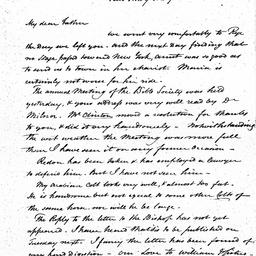 My dear Father
we went very comfortably to Rye
the day we left you. and the next day finding that
no stage passed toward New York, Aunt was so good as
to send us to town in her chariot. Maria is
certainly not worse for her ride.
The annual Meeting of the Bible Society was held
yesterday, & your address was very well read by Dr
Milnor. Mr Clinton moved a resolution for thanks
to you, & did it very handsomely. Notwithstanding
the wet weather the Meeting was more full
than I have seen it on any former occasion
has been taken & has employed a Lawyer
to defend him. But I have not seen him
My Arabian Colt looks very well, & almost too fat.
He is handsome but not equal to some other Colts of
the same horse, nor will he be large
The Reply to the letter to the Bishop has not yet
appeared. I have heard that is to be published on
Tuesday next. I fancy the letter has been proved of
our love to William